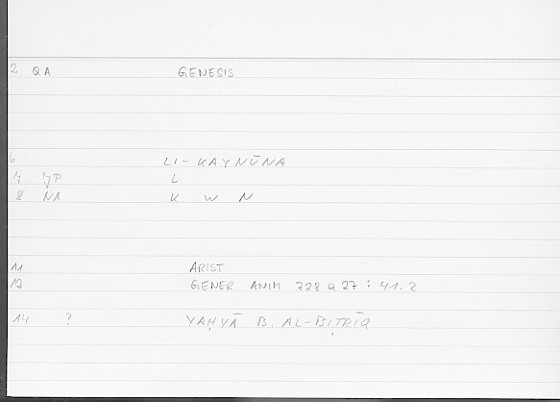 2 QA GENESIS
6 LI-KAYNŪNA
7 JP L
8 NA K W N
11 ARIST
13 GENER ANIM 728 a 27 : 41.2
14 ? YAḤYĀ B. AL-BIṬRĪQ